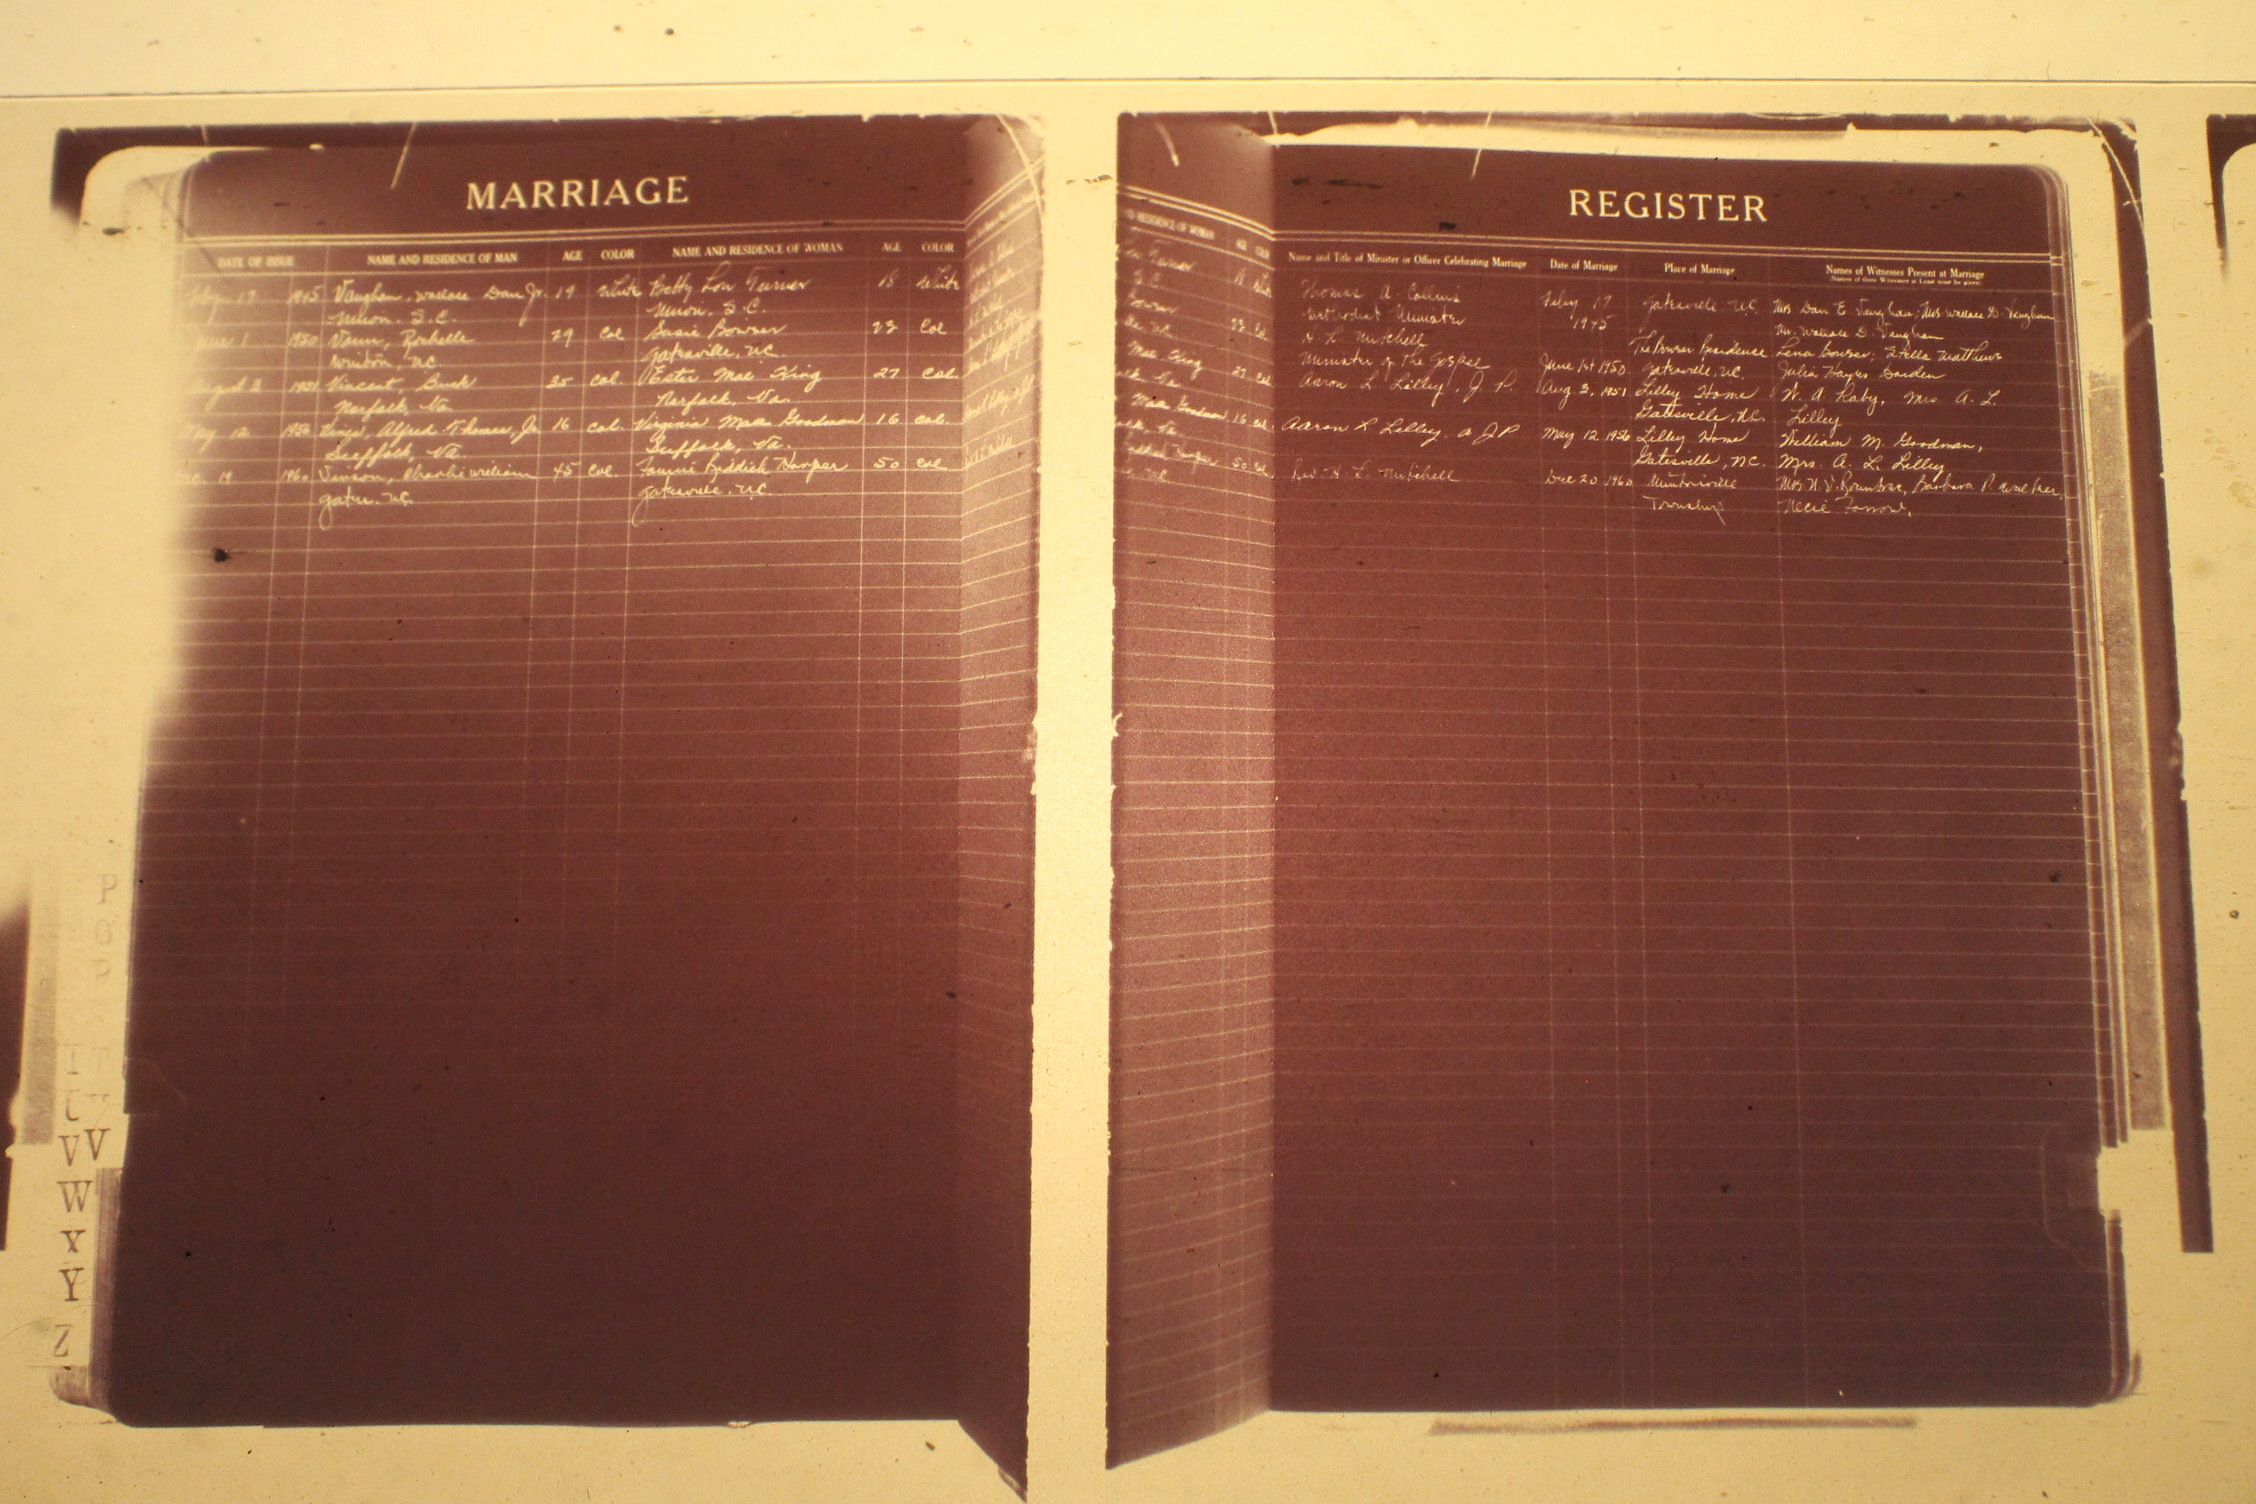 MARRIAGE
DATE OF ISSUE NAME AND RESIDENCE OF MAN AGE COLOR NAME AND RESIDENCE OF WOMAN AGE COLOR
17 1945 Vaughan, Wallace Dan Jr. 19 White Betty Lou Turner 18 White
S.C. S.C.
June 1 1950 Vann, Rochelle 29 Col Susie Bowser 23 Col
Winton, N.C. Gatesville, N.C.
August 3 1951 Vincent, Buck 35 Col. Ester Mae King 27 Col.
Norfolk, Va. Norfolk, Va.
May 12 1956 Alfred Thomas, Jr 16 Col. Virginia Mae Goodman 16 Col.
Suffolk, Va. Suffolk, Va.
19 1960 Vinson, Charlie William 45 Col. Fannie Riddick Harper 50 Col
Gates, N.C. Gatesville, N.C.
P
O
P
I T
U
V V
W
X
Y
Z
REGISTER
RESIDENCE OF WOMAN AGE
Name and Title of Minister or Officer Celebrating Marriage Date of Marriage Place of Marriage Names of Witnesses Present at Marriage
(Names of three Witnesses at Least must be given)
Thomas A. Collins Feby 17 Gatesville N.C. Mrs Dan E Vaughan; Mrs. Wallace D. Vaughan
Methodist Minister 1945 Mr. Wallace D. Vaughan
H. L. Mitchell The Bowser Residence Lena Bowser; Stella Matthews
Minister of The Gospel June 1st 1950 Gatesville, N.C. Julia Hayes
Aaron L Lilley, J. P. Aug. 3, 1951 Lilley Home W. A. Raby, Mrs. A. L.
Gatesville, N.C. Lilley
Aaron L Lilley, a J P May 12 1956 Lilley Home William M. Goodman,
Gatesville, N.C. Mrs. A. L. Lilley
Rev H. L. Mitchell Dec 20 1960 Mintonville Barbara P.
Township